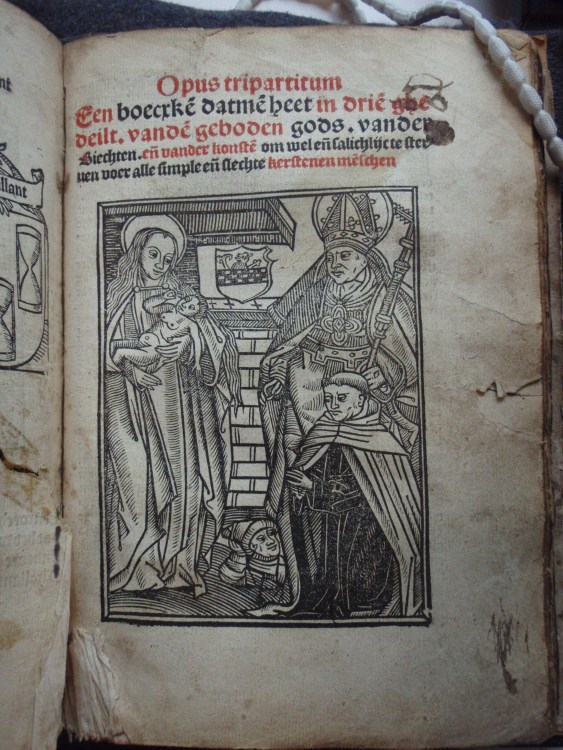 nt
llant
Opus tripartitum
Een boecxkē datmē heet in driē ghe
deilt. vandē geboden gods. vander
Biechten. eñ vander konstē om wel eñ salichlijc te ster
uen voer alle simple eñ slechte kerstenen mēschen